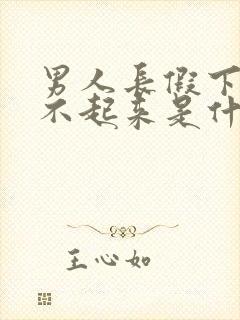 男人長假下
不起来是什
王心如